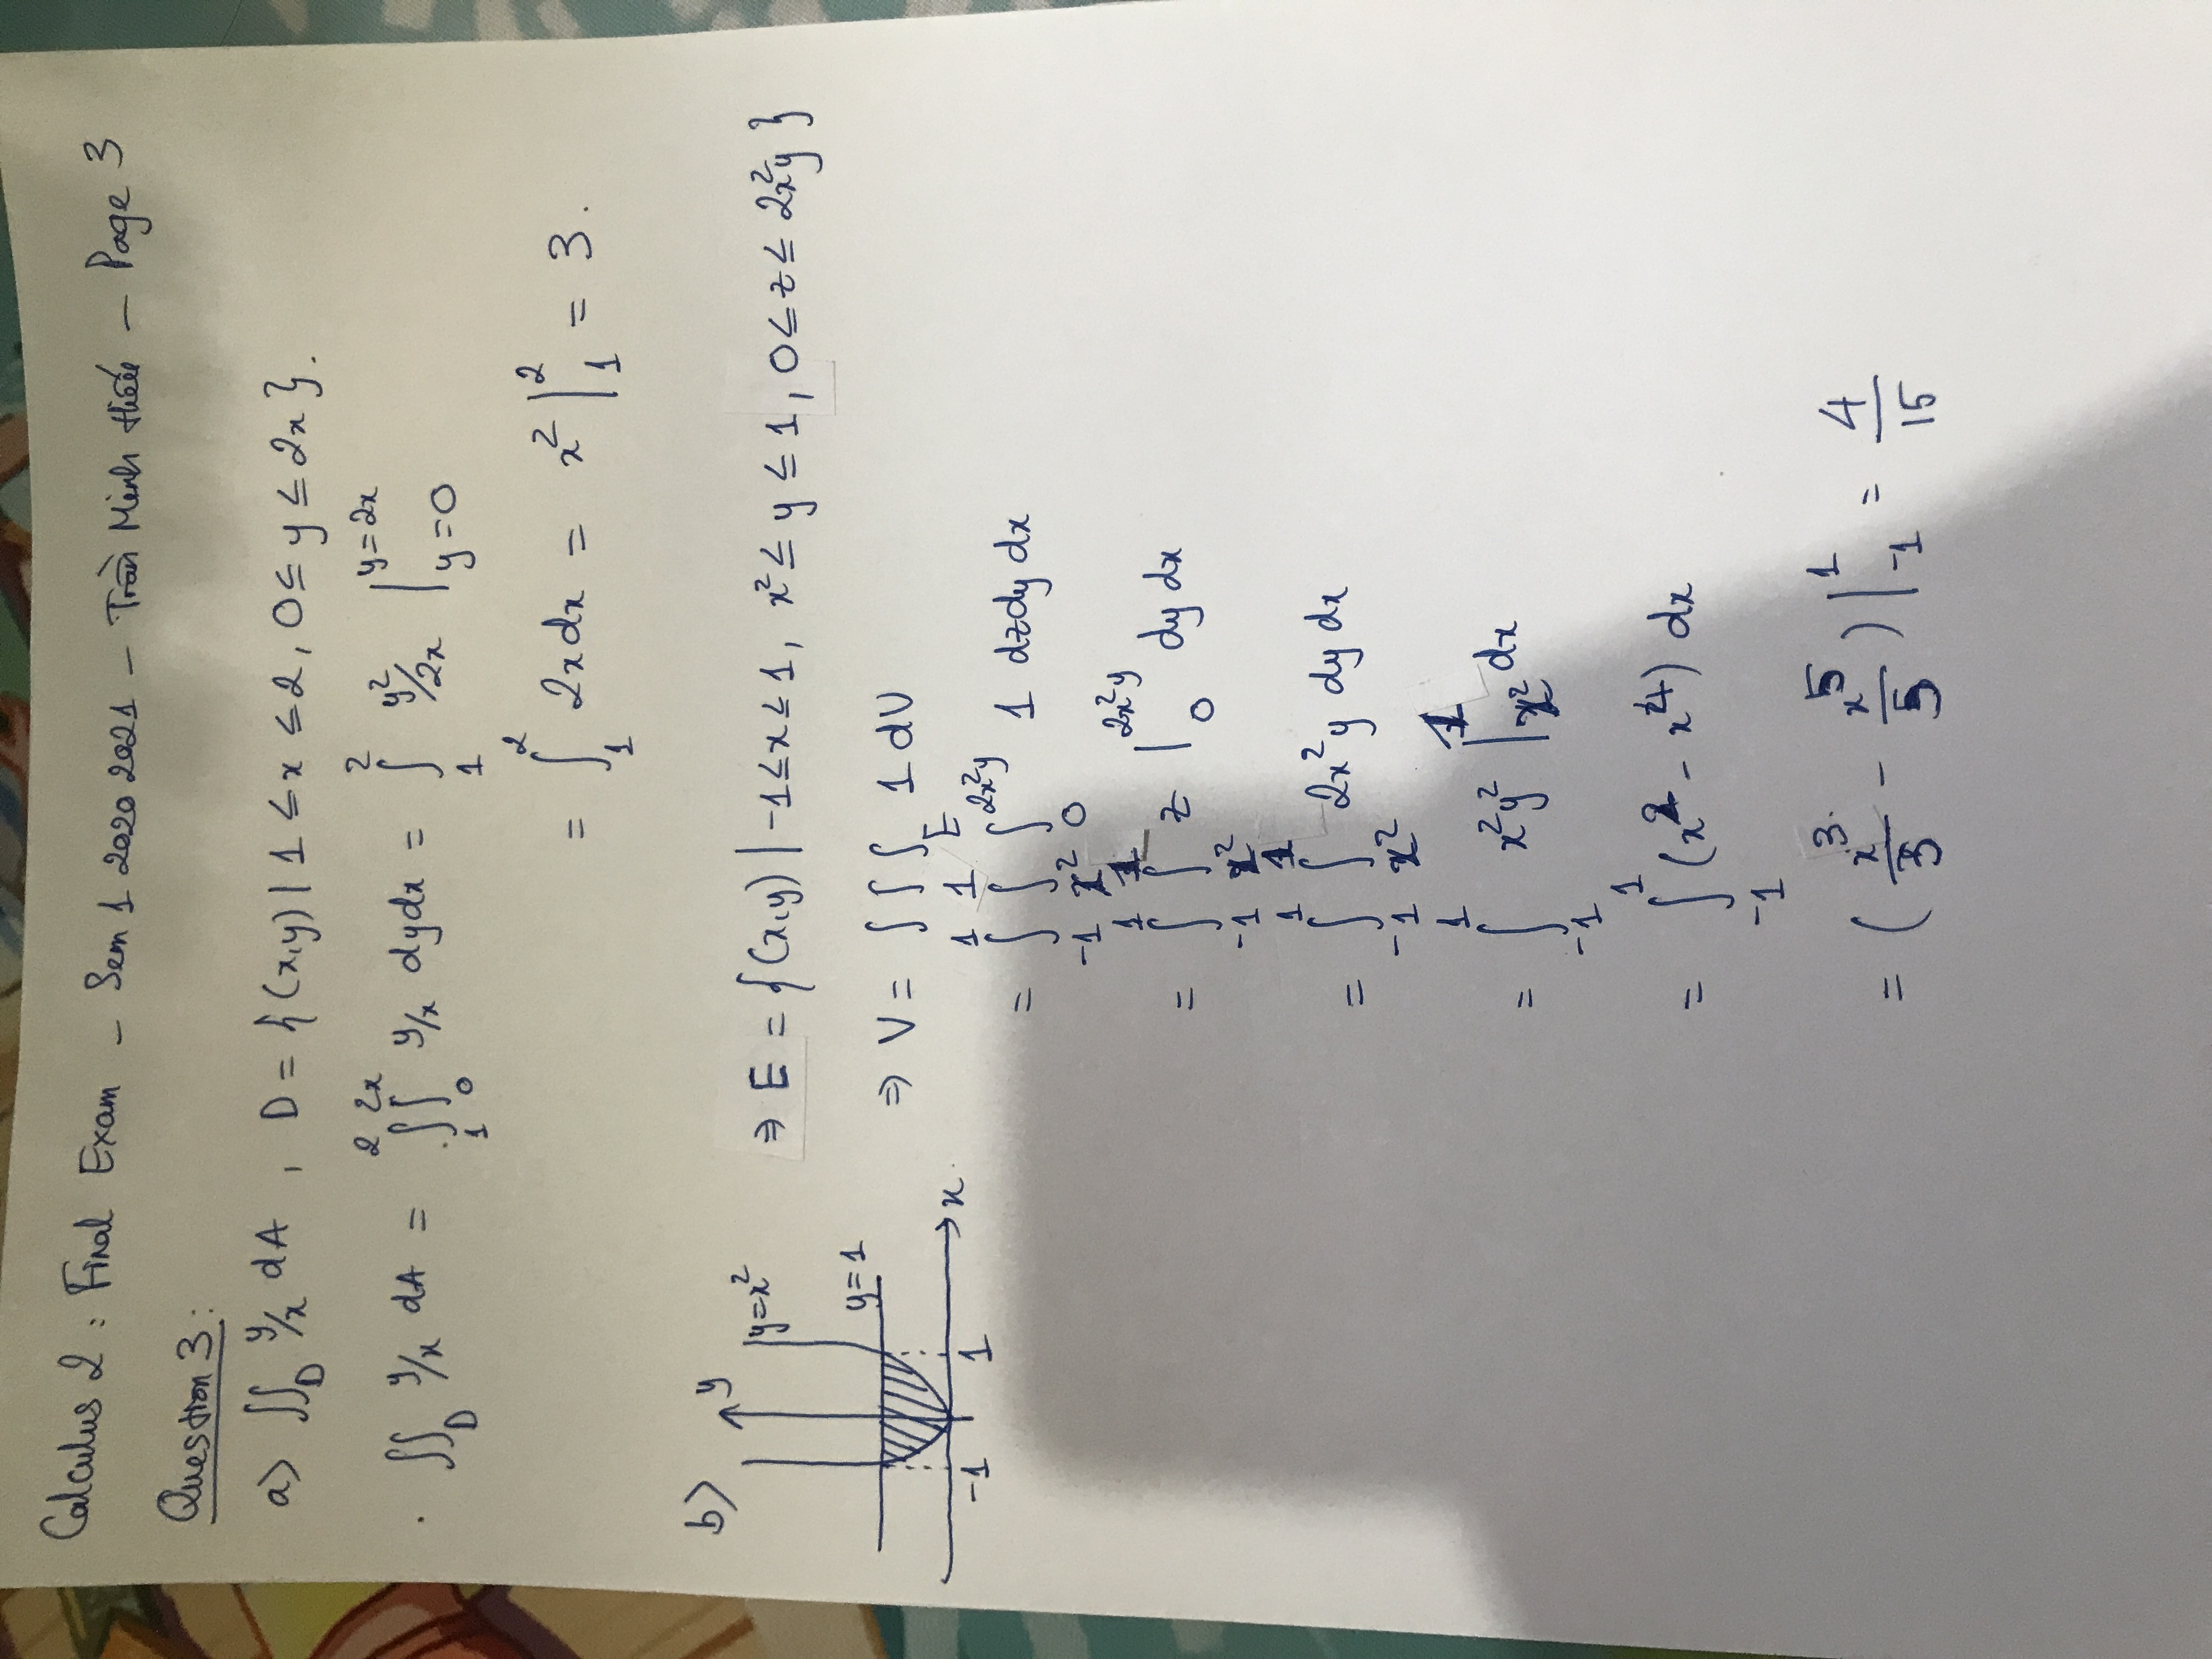 Calculus 2 : Final Exam – Sem 1 2020 2021 – Trần Minh Hiếu – Page 3
Question 3 :
a) ∬_D y/x dA , D = {(x,y) | 1 ≤ x ≤ 2, 0 ≤ y ≤ 2x}.
. ∬_D y/x dA = ∫_1^2 ∫_0^{2x} y/x dydx = ∫_1^2 y²/2x |_{y=0}^{y=2x}
= ∫_1^2 2x dx = x² |_1^2 = 3.
b) y
y=x²
y=1
x
-1 1
⇒ E = {(x,y) | -1 ≤ x ≤ 1, x² ≤ y ≤ 1, 0 ≤ z ≤ 2x²y}
⇒ V = ∫∫∫_E 1 dV
= ∫_{-1}^1 ∫_{x²}^1 ∫_0^{2x²y} 1 dzdy dx
= ∫_{-1}^1 ∫_{x²}^1 z |_0^{2x²y} dy dx
= ∫_{-1}^1 ∫_{x²}^1 2x²y dy dx
= ∫_{-1}^1 x²y² |_{x²}^1 dx
= ∫_{-1}^1 (x² - x⁴) dx
= (x³/3 - x⁵/5) |_{-1}^1 = 4/15